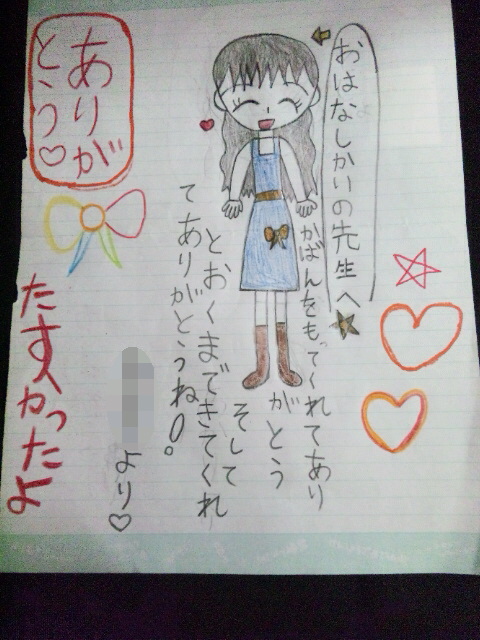 おはなしかいの先生へ
かばんをもってくれてあり
がとう
そして
とおくまできてくれ
てありがとうね。
より♡
ありが
とう♡
たすかったよ